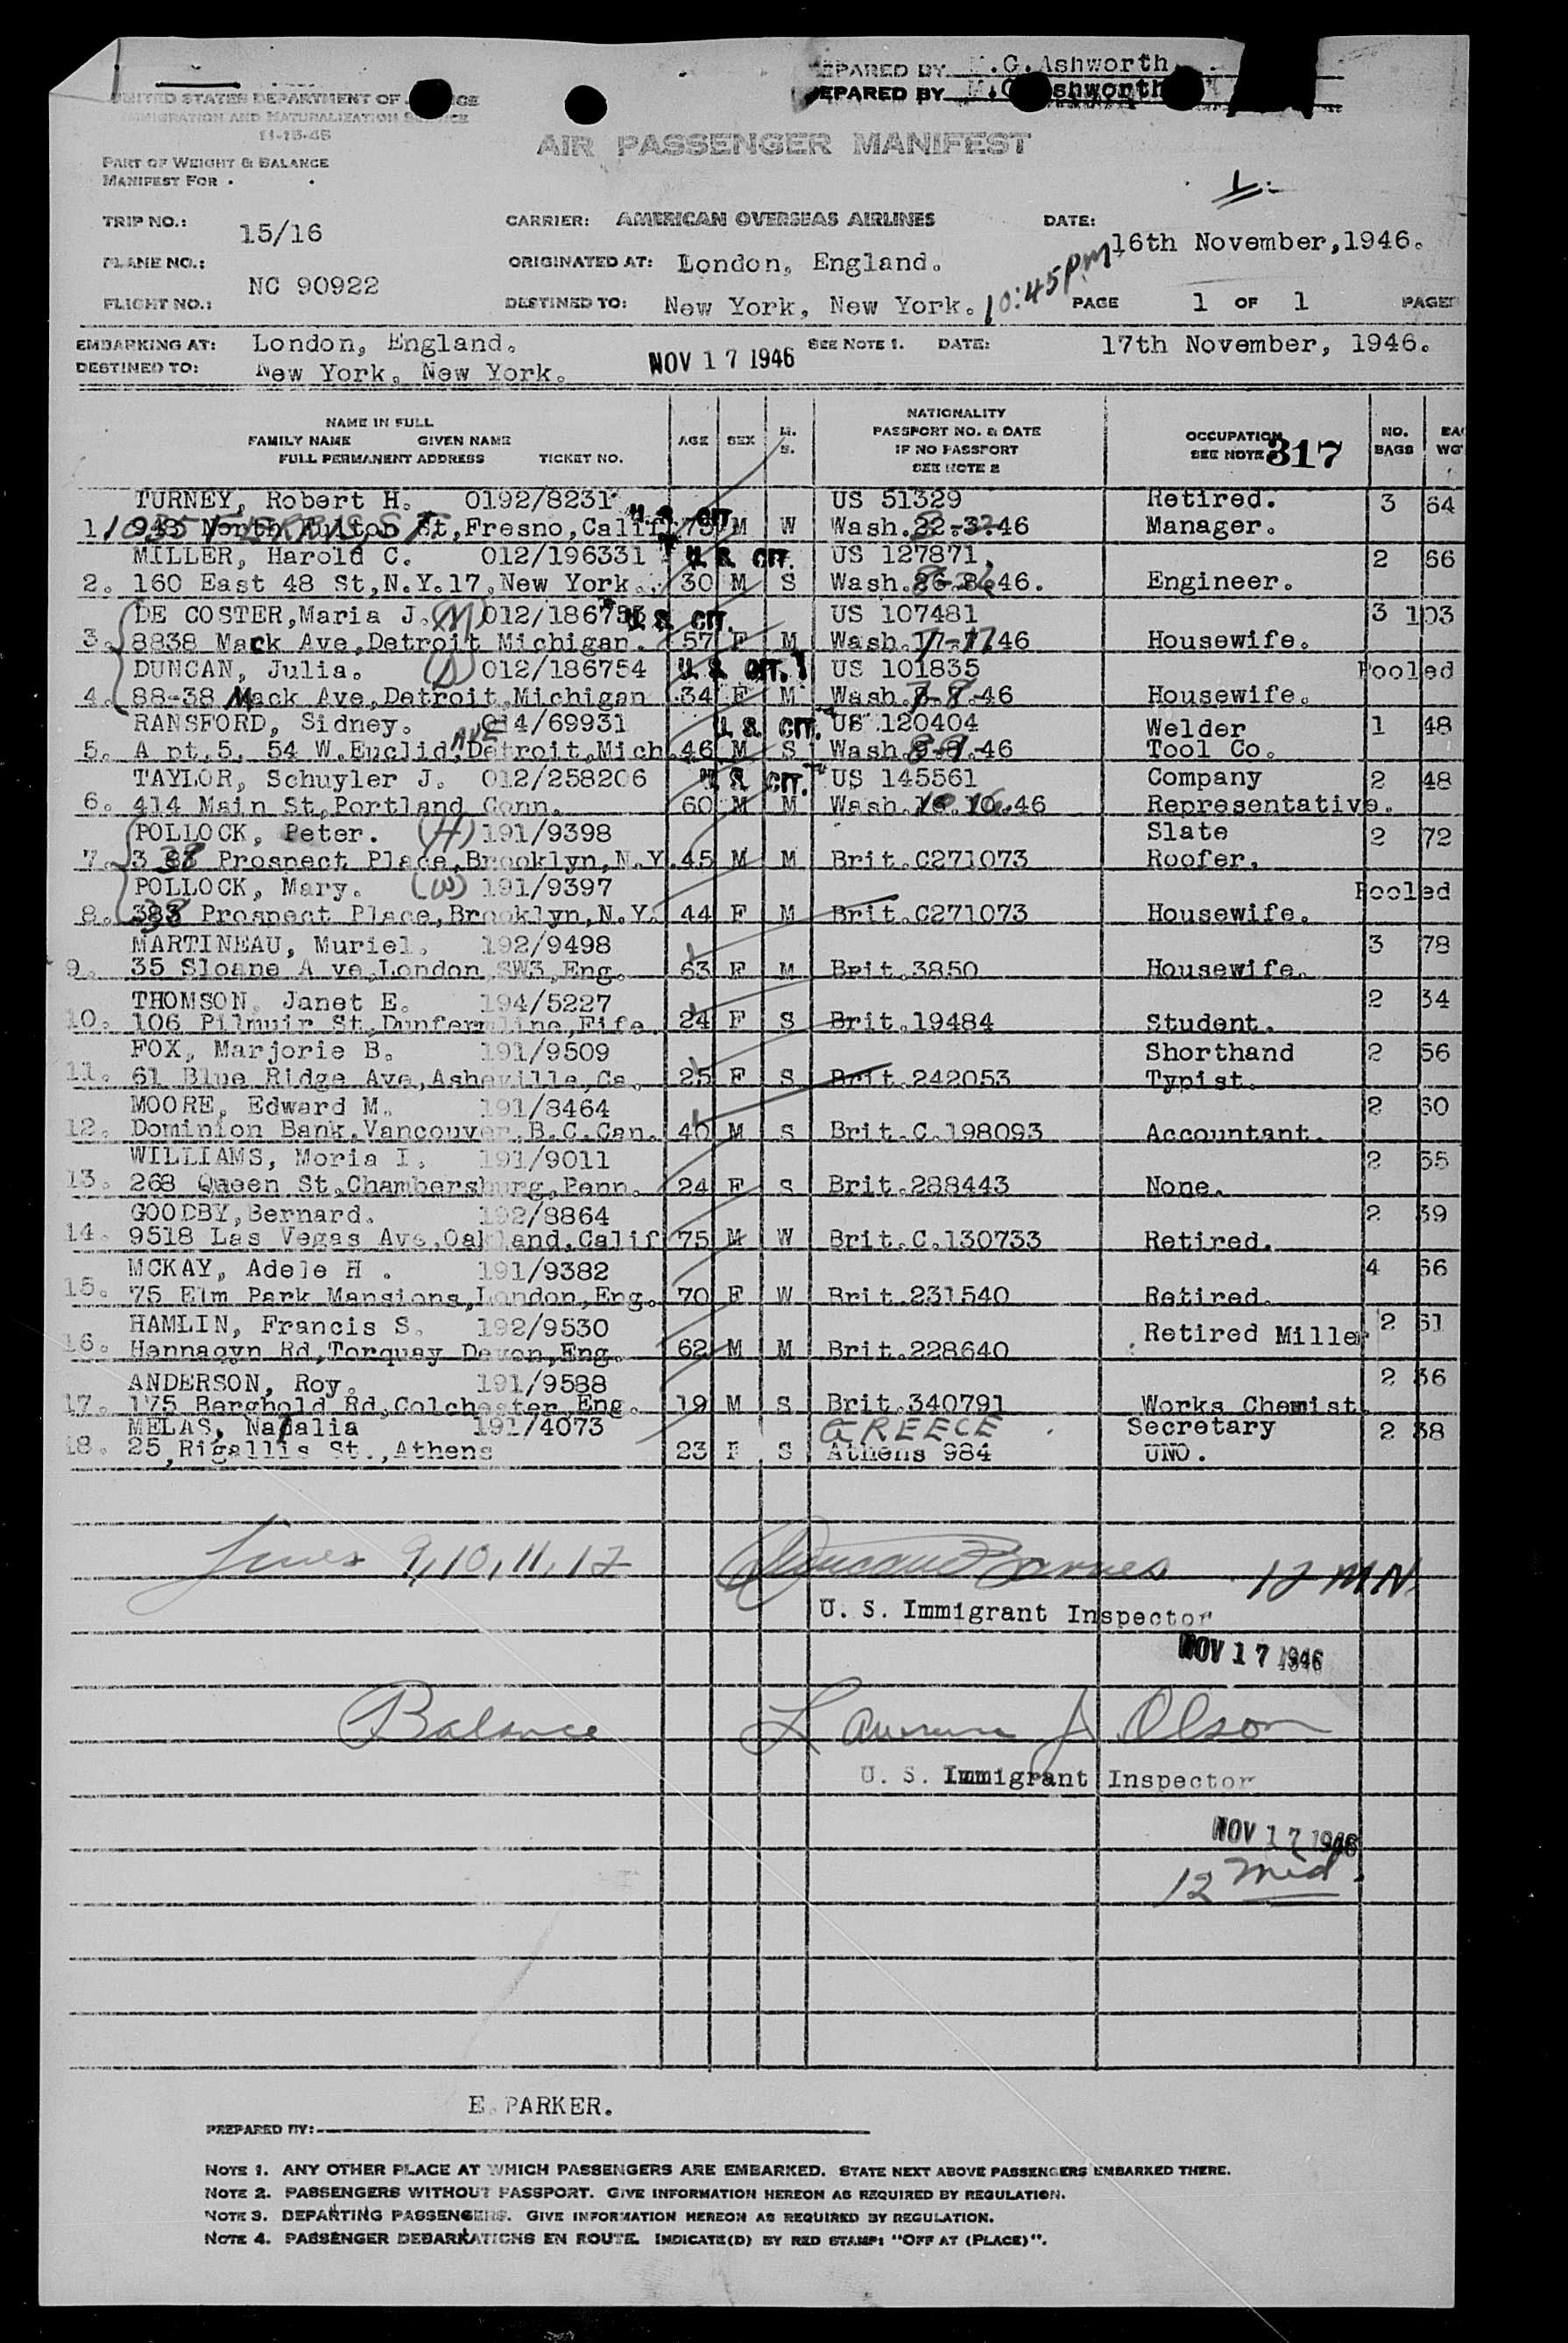 PREPARED BY M.G.Ashworth
PREPARED BY M.G.Ashworth
UNITED STATES DEPARTMENT OF JUSTICE
IMMIGRATION AND NATURALIZATION SERVICE
11-15-45
AIR PASSENGER MANIFEST
PART OF WEIGHT & BALANCE
MANIFEST FOR
TRIP NO.: 15/16 CARRIER: AMERICAN OVERSEAS AIRLINES DATE: 16th November,1946.
PLANE NO.: NC 90922 ORIGINATED AT: London, England.
FLIGHT NO.: DESTINED TO: New York, New York. 10:45pm PAGE 1 OF 1 PAGES
EMBARKING AT: London, England. SEE NOTE 1. DATE: 17th November, 1946.
DESTINED TO: New York, New York. NOV 17 1946
NAME IN FULL
FAMILY NAME GIVEN NAME
FULL PERMANENT ADDRESS TICKET NO. AGE SEX M. S. NATIONALITY PASSPORT NO. & DATE IF NO PASSPORT SEE NOTE 2 OCCUPATION SEE NOTE 317 NO. BAGS
TURNEY, Robert H. 0192/8231 U.S. CIT. US 51329 Retired. 3 64
1. North Fulton St,Fresno,Calif 75 M W Wash.22-3-46 Manager.
MILLER, Harold C. 012/196331 U.S. CIT. US 127871, 2 66
2. 160 East 48 St,N.Y.17,New York. 30 M S Wash. 46. Engineer.
DE COSTER,Maria J. (M) 012/186753 U.S. CIT. US 107481 3 103
3. 8838 Mack Ave,Detroit Michigan. 57 F M Wash. 46 Housewife.
DUNCAN, Julia. (D) 012/186754 U.S. CIT. US 101835 Pooled
4. 88-38 Mack Ave,Detroit,Michigan 34 F M Wash. 46 Housewife.
RANSFORD, Sidney. 014/69931 U.S. CIT. US 120404 Welder 1 48
5. A pt,5, 54 W.Euclid, AVE Detroit,Mich. 46 M S Wash. 46 Tool Co.
TAYLOR, Schuyler J. 012/258206 U.S. CIT. US 145561 Company 2 48
6. 414 Main St,Portland Conn. 60 M M Wash. 10.46 Representative.
POLLOCK, Peter. (H) 191/9398 Slate 2 72
7. 3 83 Prospect Place,Brooklyn,N.Y. 45 M M Brit.C271073 Roofer.
POLLOCK, Mary. (W) 191/9397 Pooled
8. 383 Prospect Place,Brooklyn,N.Y. 44 F M Brit.C271073 Housewife.
MARTINEAU, Muriel. 192/9498 3 78
9. 35 Sloane A ve,London,SW3,Eng. 63 F M Brit.3850 Housewife.
THOMSON, Janet E. 194/5227 2 34
10. 106 Pilmuir St,Dunfermline,Fife. 24 F S Brit.19484 Student.
FOX, Marjorie B. 191/9509 Shorthand 2 56
11. 61 Blue Ridge Ave,Asheville,Ca. 25 F S Brit.242053 Typist.
MOORE, Edward M. 191/8464 2 60
12. Dominion Bank,Vancouver,B.C.Can. 40 M S Brit.C.198093 Accountant.
WILLIAMS, Moria I. 191/9011 2 55
13. 268 Queen St,Chambersburg,Penn. 24 F S Brit.288443 None.
GOODBY,Bernard. 192/8864 2 39
14. 9518 Las Vegas Ave,Oakland,Calif 75 M W Brit.C.130733 Retired.
MCKAY, Adele H . 191/9382 4 66
15. 75 Elm Park Mansions,London,Eng. 70 F W Brit.231540 Retired.
HAMLIN, Francis S. 192/9530 Retired Miller 2 61
16. Hannagyn Rd,Torquay Devon,Eng. 62 M M Brit.228640
ANDERSON, Roy. 191/9588 2 36
17. 175 Berghold Rd,Colchester,Eng. 19 M S Brit.340791 Works Chemist.
MELAS, Natalia 191/4073 GREECE Secretary 2 38
18. 25,Rigallis St.,Athens 23 F S Athens 984 UNO.
Lines 9,10,11,12 Barnes 12 MN.
U. S. Immigrant Inspector
NOV 17 1946
Balance Lawrence J Olson
U. S. Immigrant Inspector
NOV 17 1946
12 Mid.
E. PARKER.
PREPARED BY:
NOTE 1. ANY OTHER PLACE AT WHICH PASSENGERS ARE EMBARKED. STATE NEXT ABOVE PASSENGERS EMBARKED THERE.
NOTE 2. PASSENGERS WITHOUT PASSPORT. GIVE INFORMATION HEREON AS REQUIRED BY REGULATION.
NOTE 3. DEPARTING PASSENGERS. GIVE INFORMATION HEREON AS REQUIRED BY REGULATION.
NOTE 4. PASSENGER DEBARKATIONS EN ROUTE. INDICATE(D) BY RED STAMP: "OFF AT (PLACE)".